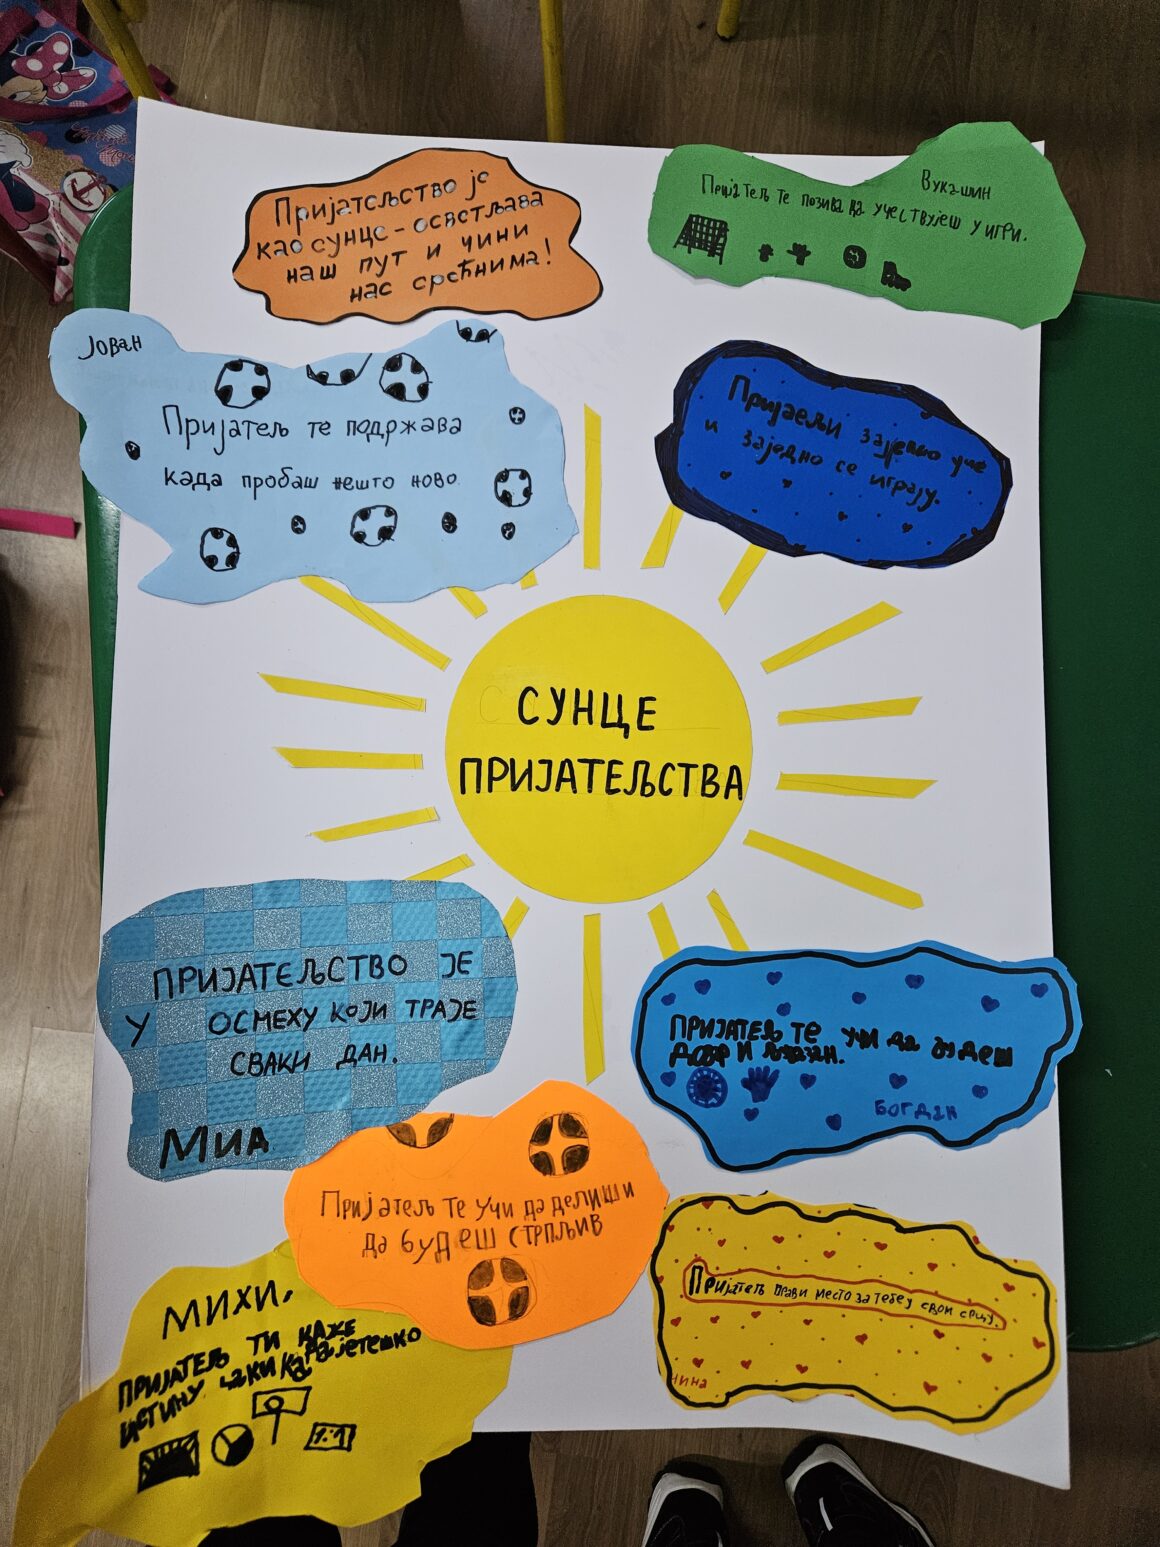 Пријатељство је
као сунце - осветљава
наш пут и чини
нас срећнима!
Вукашин
Пријатељ те позива да учествујеш у игри.
Јован
Пријатељ те подржава
када пробаш нешто ново.
Пријаељи заједно уче
и заједно се играју.
СУНЦЕ
ПРИЈАТЕЉСТВА
ПРИЈАТЕЉСТВО ЈЕ
У ОСМЕХУ КОЈИ ТРАЈЕ
СВАКИ ДАН.
МИА
ПРИЈАТЕЉ ТЕ УЧИ ДА БУДЕШ
И
БОГДАН
Пријатељ те учи да делиш и
да будеш стрпљив
МИХИ.
ПРИЈАТЕЉ ТИ КАЖЕ
ИСТИНУ. ЧАК И КАДА ЈЕ ТЕШКО
Пријатељ прави место за тебе у свом срцу.
НИНА
1:1